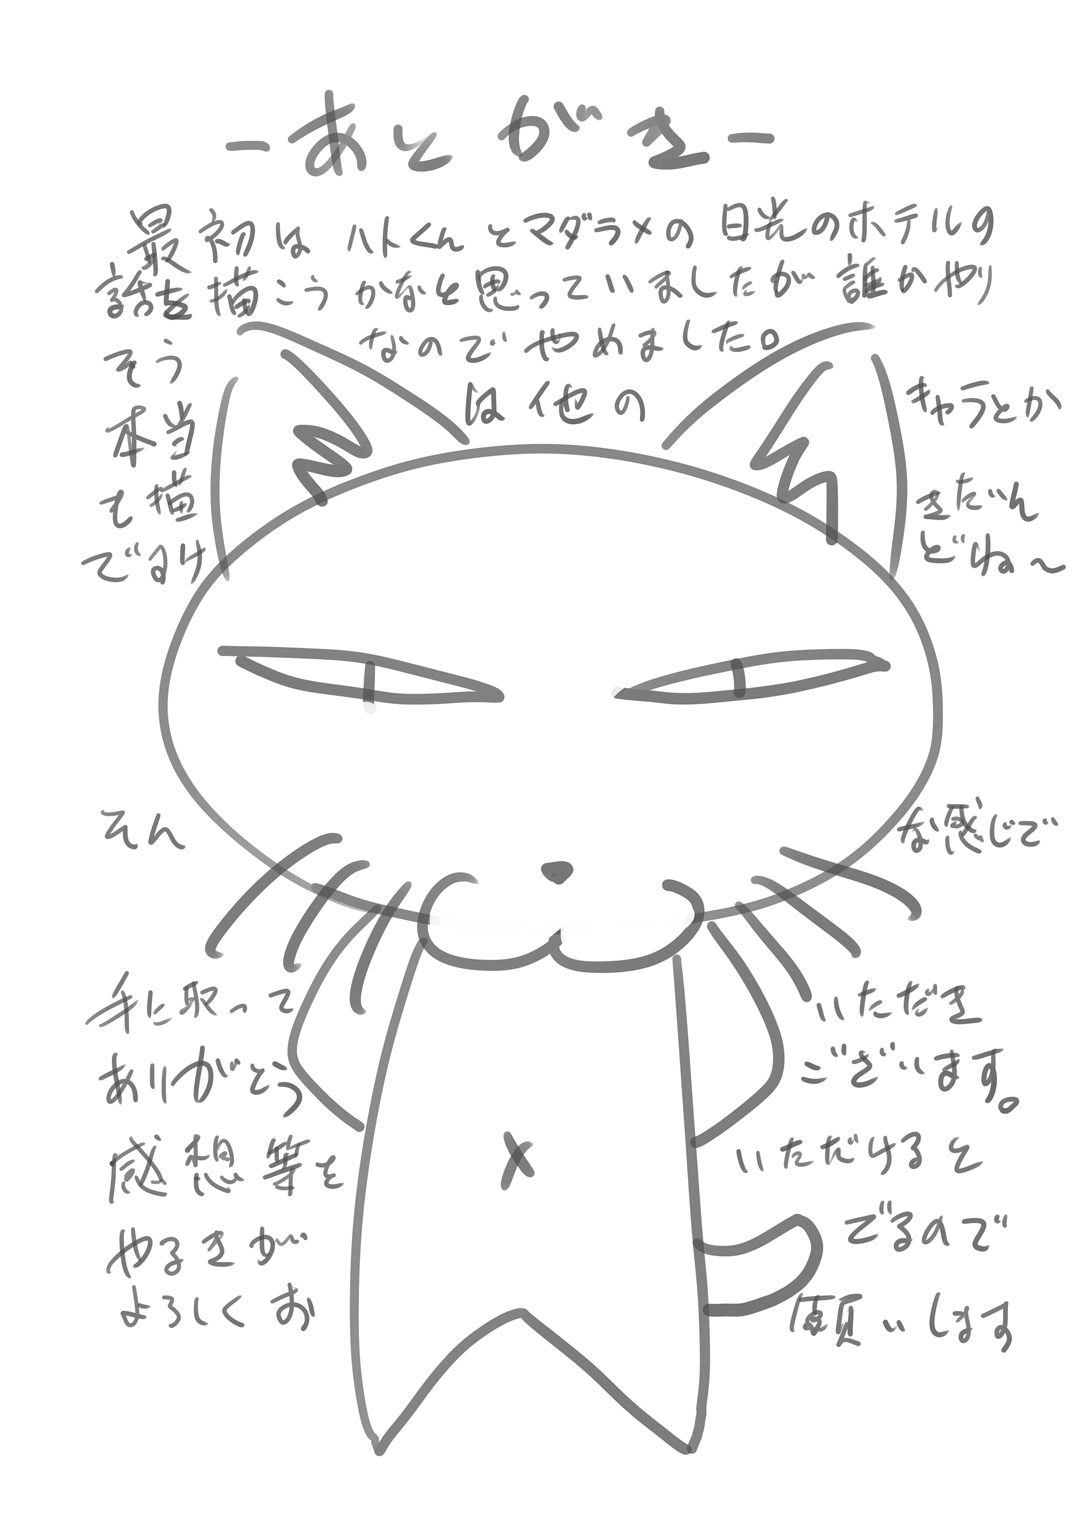 -あとがき-
最初はハトくんとマダラメの日光のホテルの
話を描こうかなと思っていましたが誰かやり
そうなのでやめました。
本当は他のキャラとか
も描きだいん
でるけどね~
そんな感じで
手に取っていただき
ありがとうございます。
感想等をいただけると
やるきがでるので
よろしくお願いします